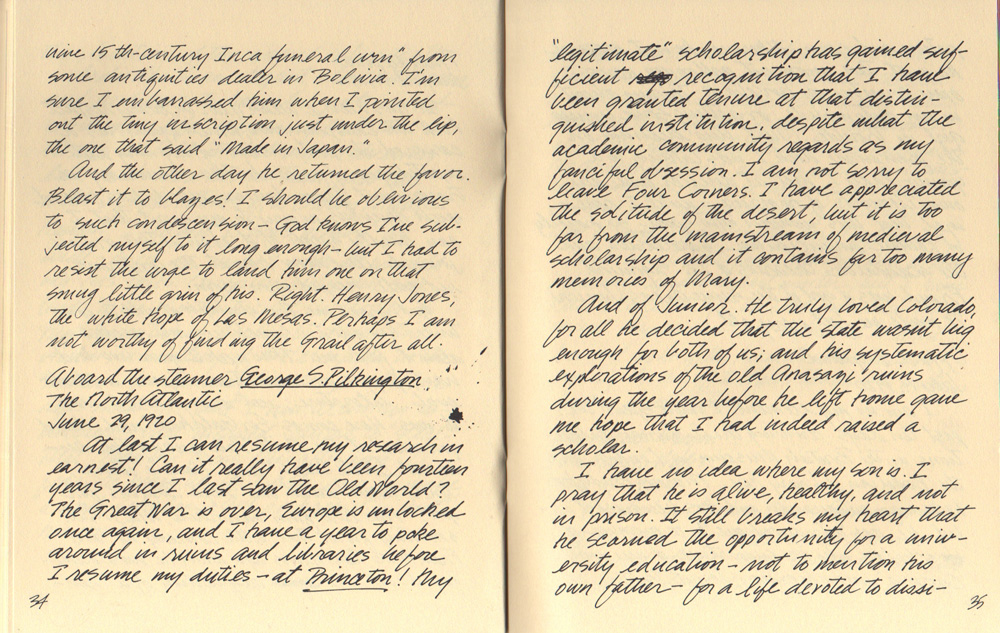 nine 15th-century Inca funeral urn" from
some antiquities dealer in Bolivia. I'm
sure I embarrassed him when I pointed
out the tiny inscription just under the lip,
the one that said "Made in Japan."
And the other day he returned the favor.
Blast it to blazes! I should be oblivious
to such condescension — God knows I've sub-
jected myself to it long enough — but I had to
resist the urge to land him one on that
smug little grin of his. Right. Henry Jones,
the white hope of Las Mesas. Perhaps I am
not worthy of finding the Grail after all.
Aboard the steamer George S. Pilkington
The North Atlantic
June 29, 1920
At last I can resume my research in
earnest! Can it really have been fourteen
years since I last saw the Old World?
The Great War is over, Europe is unlocked
once again, and I have a year to poke
around in ruins and libraries before
I resume my duties — at Princeton! My
34
"legitimate" scholarship has gained suf-
ficient recognition that I have
been granted tenure at that distin-
guished institution, despite what the
academic community regards as my
fanciful obsession. I am not sorry to
leave Four Corners. I have appreciated
the solitude of the desert, but it is too
far from the mainstream of medieval
scholarship and it contains far too many
memories of Mary.
And of Junior. He truly loved Colorado,
for all he decided that the state wasn't big
enough for both of us; and his systematic
explorations of the old Anasazi ruins
during the year before he left home gave
me hope that I had indeed raised a
scholar.
I have no idea where my son is. I
pray that he is alive, healthy, and not
in prison. It still breaks my heart that
he scorned the opportunity for a univ-
ersity education — not to mention his
own father — for a life devoted to dissi-
35